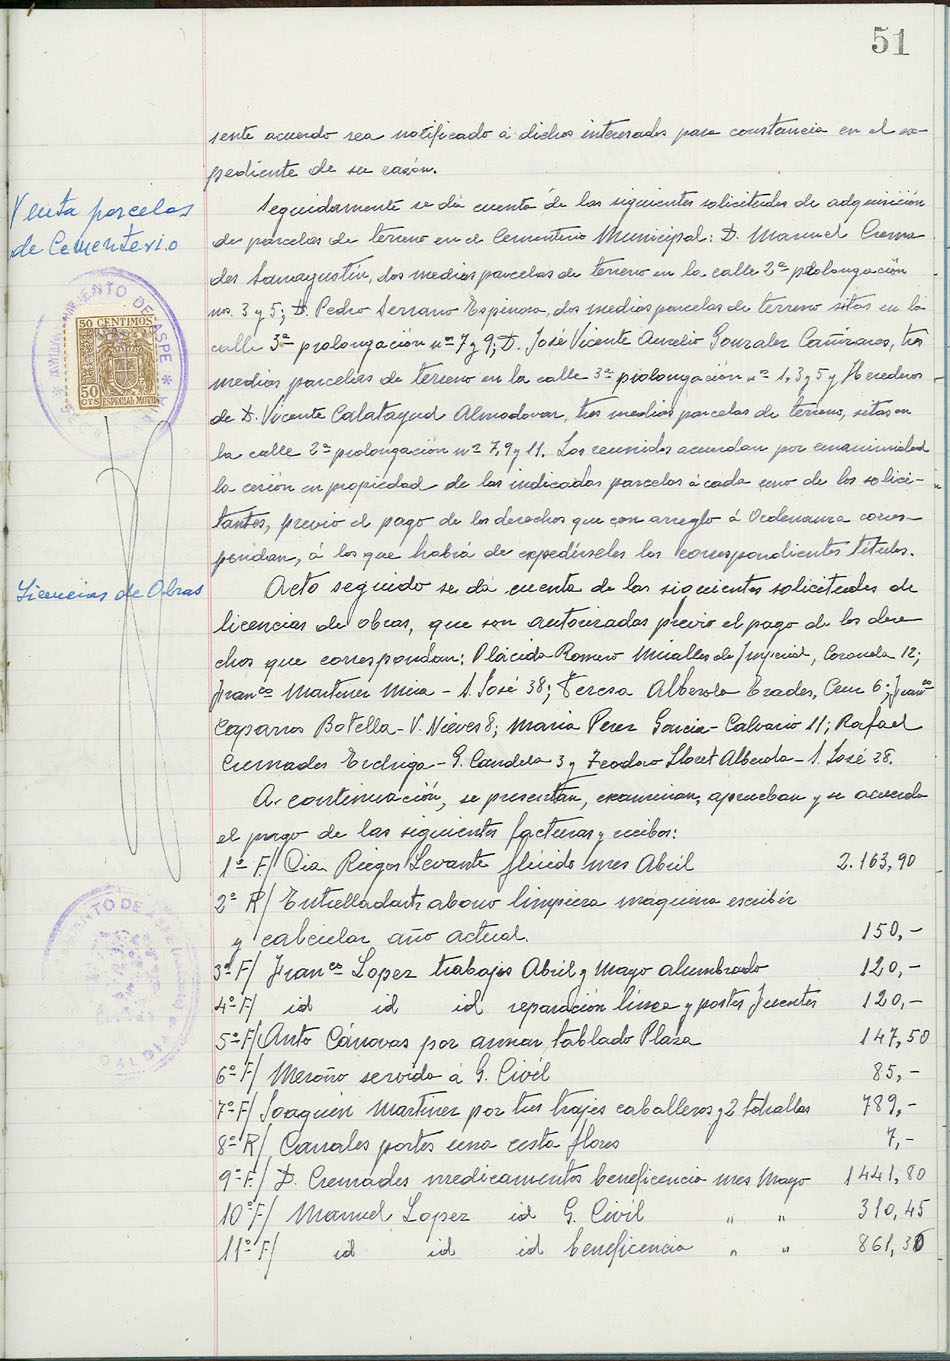 51
sente acuerdo sea notificado á dichos interesados para constancia en el ex-
pediente de su razón.
Venta parcelas
de Cementerio
Seguidamente se dá cuenta de las siguientes solicitudes de adquisición
de parcelas de terreno en el Cementerio Municipal: D. Manuel Crema
des Sanagustín, dos medias parcelas de terreno en la calle 2ª prolongación
nos. 3 y 5; D. Pedro Serrano Espinosa, dos medias parcelas de terreno sitas en la
calle 3ª prolongación nº 7 y 9; D. José Vicente Aurelio Gonzalez Cañizares, tres
medias parcelas de terreno en la calle 3ª prolongación nº 1, 3 y 5 y Herederos
de D. Vicente Calatayud Almodovar, tres medias parcelas de terreno, sitas en
la calle 2ª prolongación nº 7, 9 y 11. Los reunidos acuerdan por unanimidad
la cesión en propiedad de las indicadas parcelas á cada uno de los solici-
tantes, previo el pago de los derechos que con arreglo á Ordenanza corres-
pondan, á los que habrá de expedírseles los correspondientes títulos.
AYUNTAMIENTO DE ASPE
50 CENTIMOS
50
CTS ESPECIAL MOVIL
Licencias de Obras
Acto seguido se dá cuenta de las siguientes solicitudes de
licencias de obras, que son autorizadas previo el pago de los dere
chos que correspondan: Plácida Romero Miralles de Imperial, Coronela 12;
Franco Martinez Mira - S. José 38; Teresa Alberola Erades, Cruz 6; Franco
Caparros Botella - V. Nieves 8; Maria Perez Garcia - Calvario 11; Rafael
Cremades - G. Candela 3 y Teodoro Lloret Alberola - S. José 28.
A continuación, se presentan, examinan, aprueban y se acuerda
el pago de las siguientes facturas y recibos:
1º F/ Cia Riegos Levante flúido mes Abril 2.163,90
2º R/ abono limpieza maquina escribir
y calcular año actual. 150,-
3º F/ Franco Lopez trabajos Abril y Mayo alumbrado 120,-
4º F/ id id id reparación linea y postes fuentes 120,-
5º F/ Anto Cánovas por armar tablado Plaza 147,50
6º F/ Meroño servido á G. Civil 85,-
7º F/ Joaquín Martinez por tres trajes caballeros y 2 tohallas 789,-
8º R/ Canales portes una cesta flores 7,-
9º F/ D. Cremades medicamentos beneficencia mes Mayo 1441,80
10º F/ Manuel Lopez id G. Civil " " 310,45
11º F/ id id id beneficencia " " 861,30
AYUNTAMIENTO DE ASPE
ALCALDIA